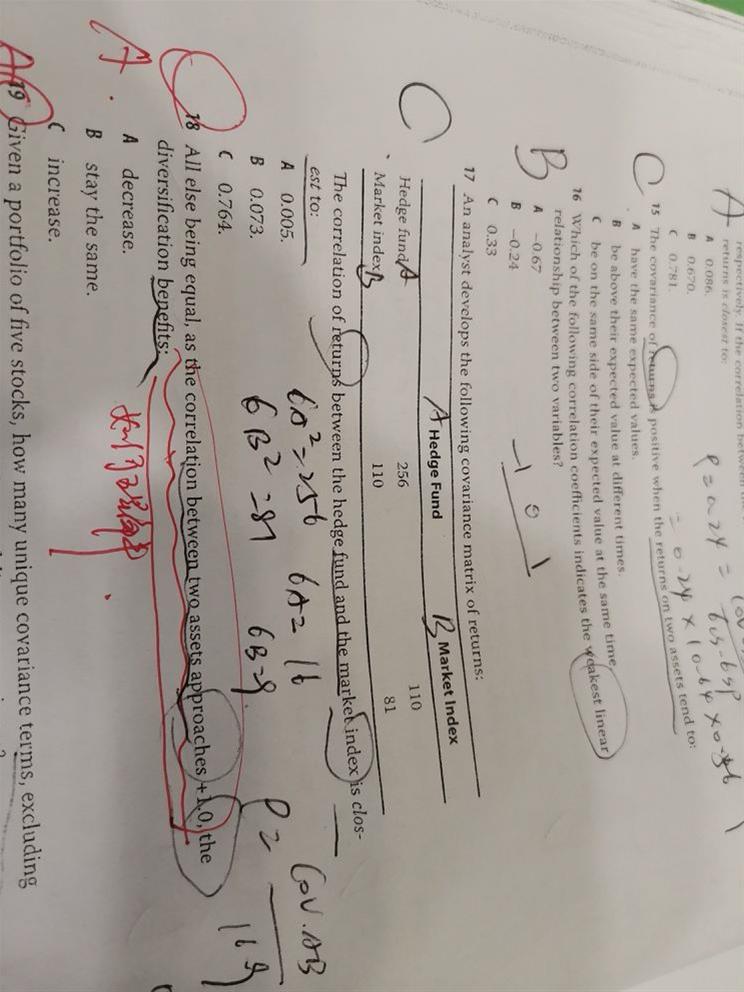 respectively. If the correlation between
returns is closest to:
A 0.086.
B 0.670.
C 0.781.
A
15 The covariance of returns is positive when the returns on two assets tend to:
A have the same expected values.
B be above their expected value at different times.
C be on the same side of their expected value at the same time.
C
16 Which of the following correlation coefficients indicates the weakest linear
relationship between two variables?
A −0.67
B −0.24
C 0.33
B
-1 0 1
17 An analyst develops the following covariance matrix of returns:
A Hedge Fund B Market Index
Hedge fund A 256 110
Market index B 110 81
The correlation of returns between the hedge fund and the market index is clos-
est to:
A 0.005.
B 0.073.
C 0.764.
C
6A²=256 6A=16
6B²=81 6B=9
COV.AB
16 9
18 All else being equal, as the correlation between two assets approaches +1.0, the
diversification benefits:
A decrease.
B stay the same.
C increase.
A
A
19 Given a portfolio of five stocks, how many unique covariance terms, excluding